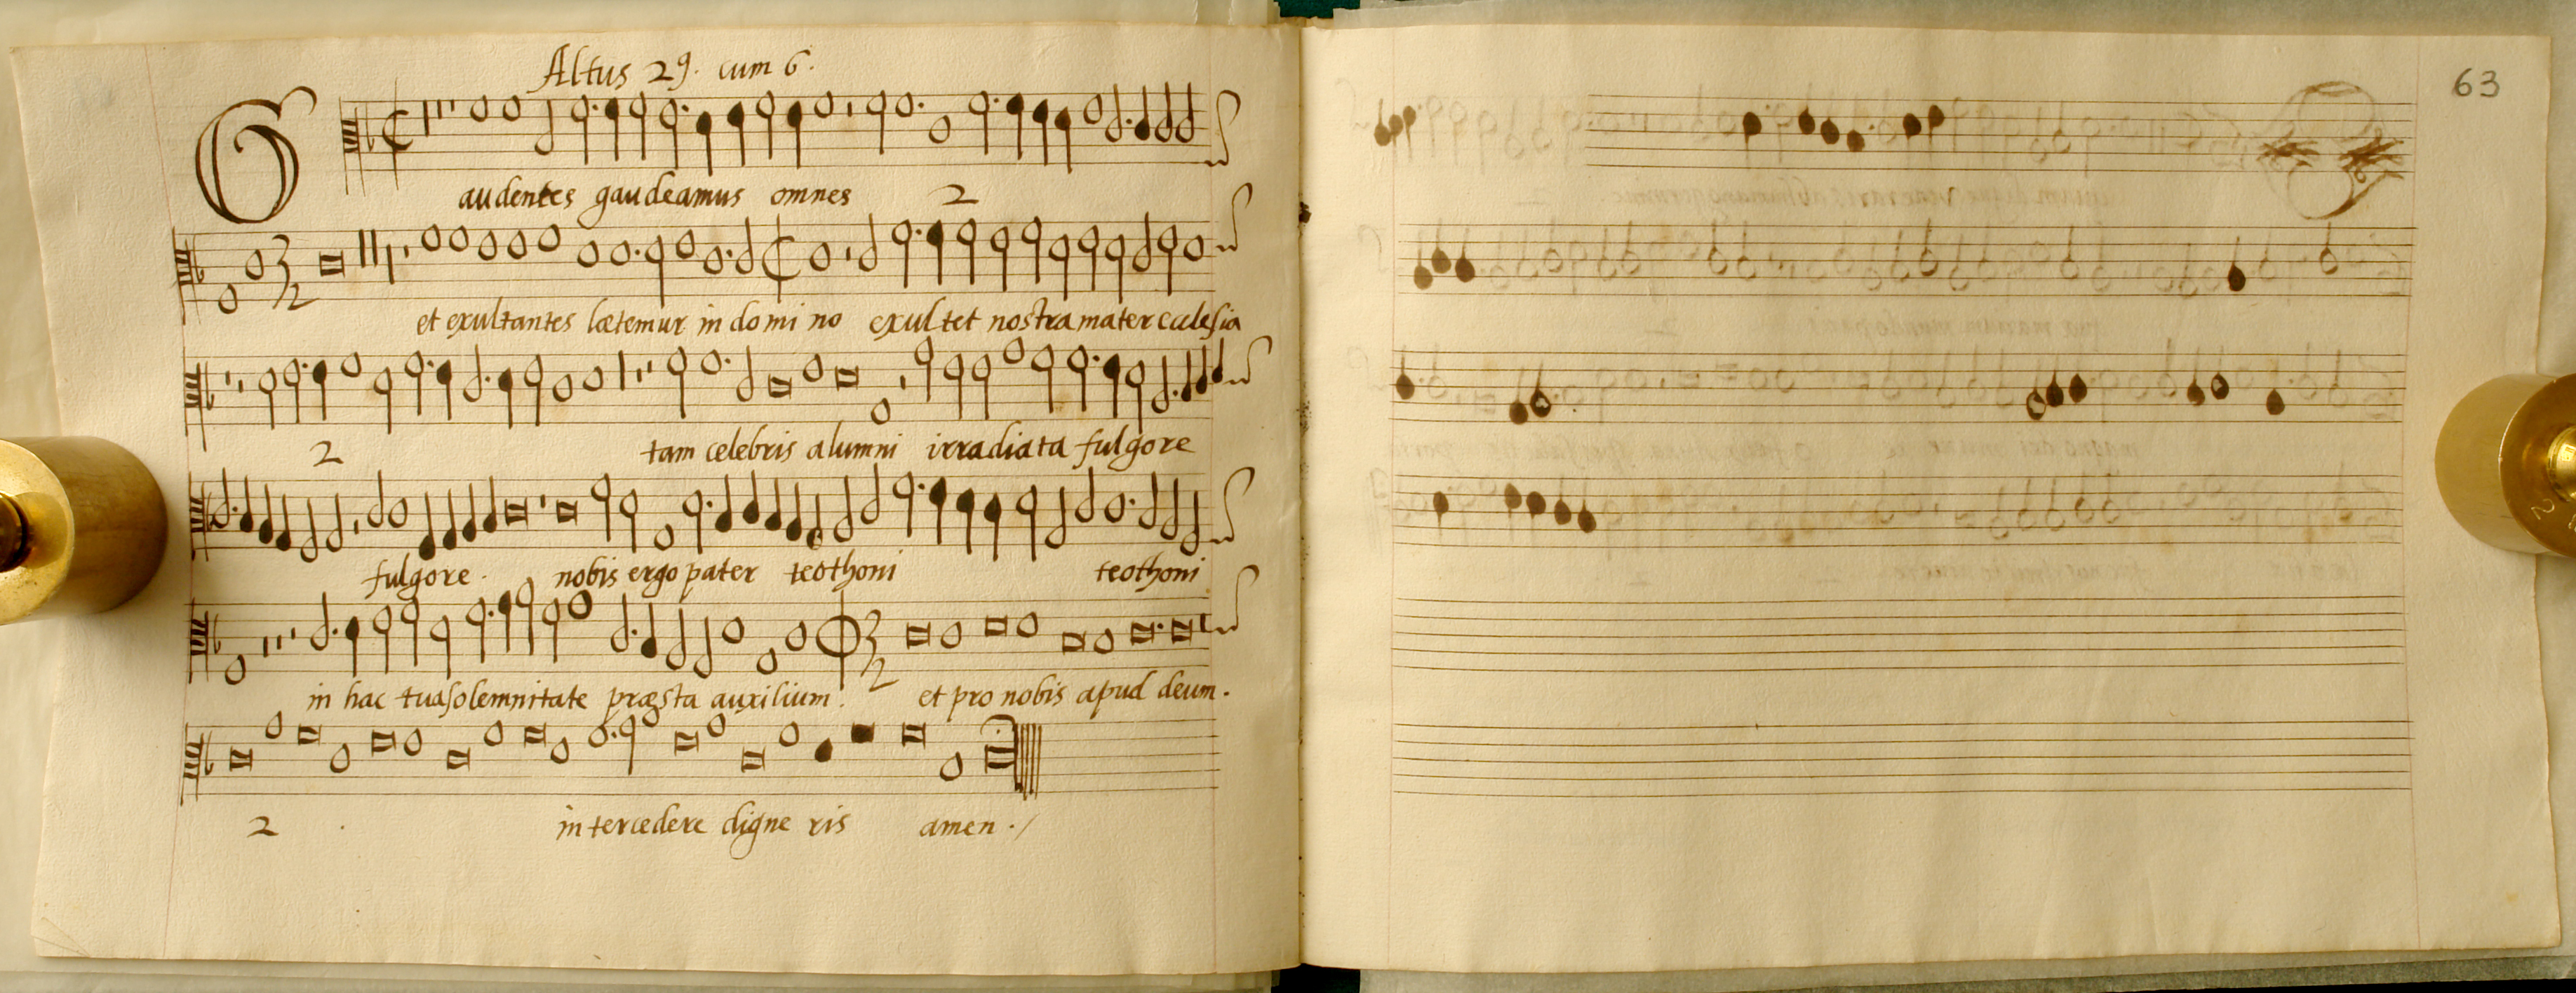 Altus 29. cum 6.
63
Gaudentes gaudeamus omnes 2
et exultantes lætemur in domi no exultet nostra mater ecclesia
2 tam celebris alumni irradiata fulgore
fulgore. nobis ergo pater teothoni teothoni
in hac tua solemnitate præsta auxilium. et pro nobis apud deum.
2 intercedere digne ris amen ./